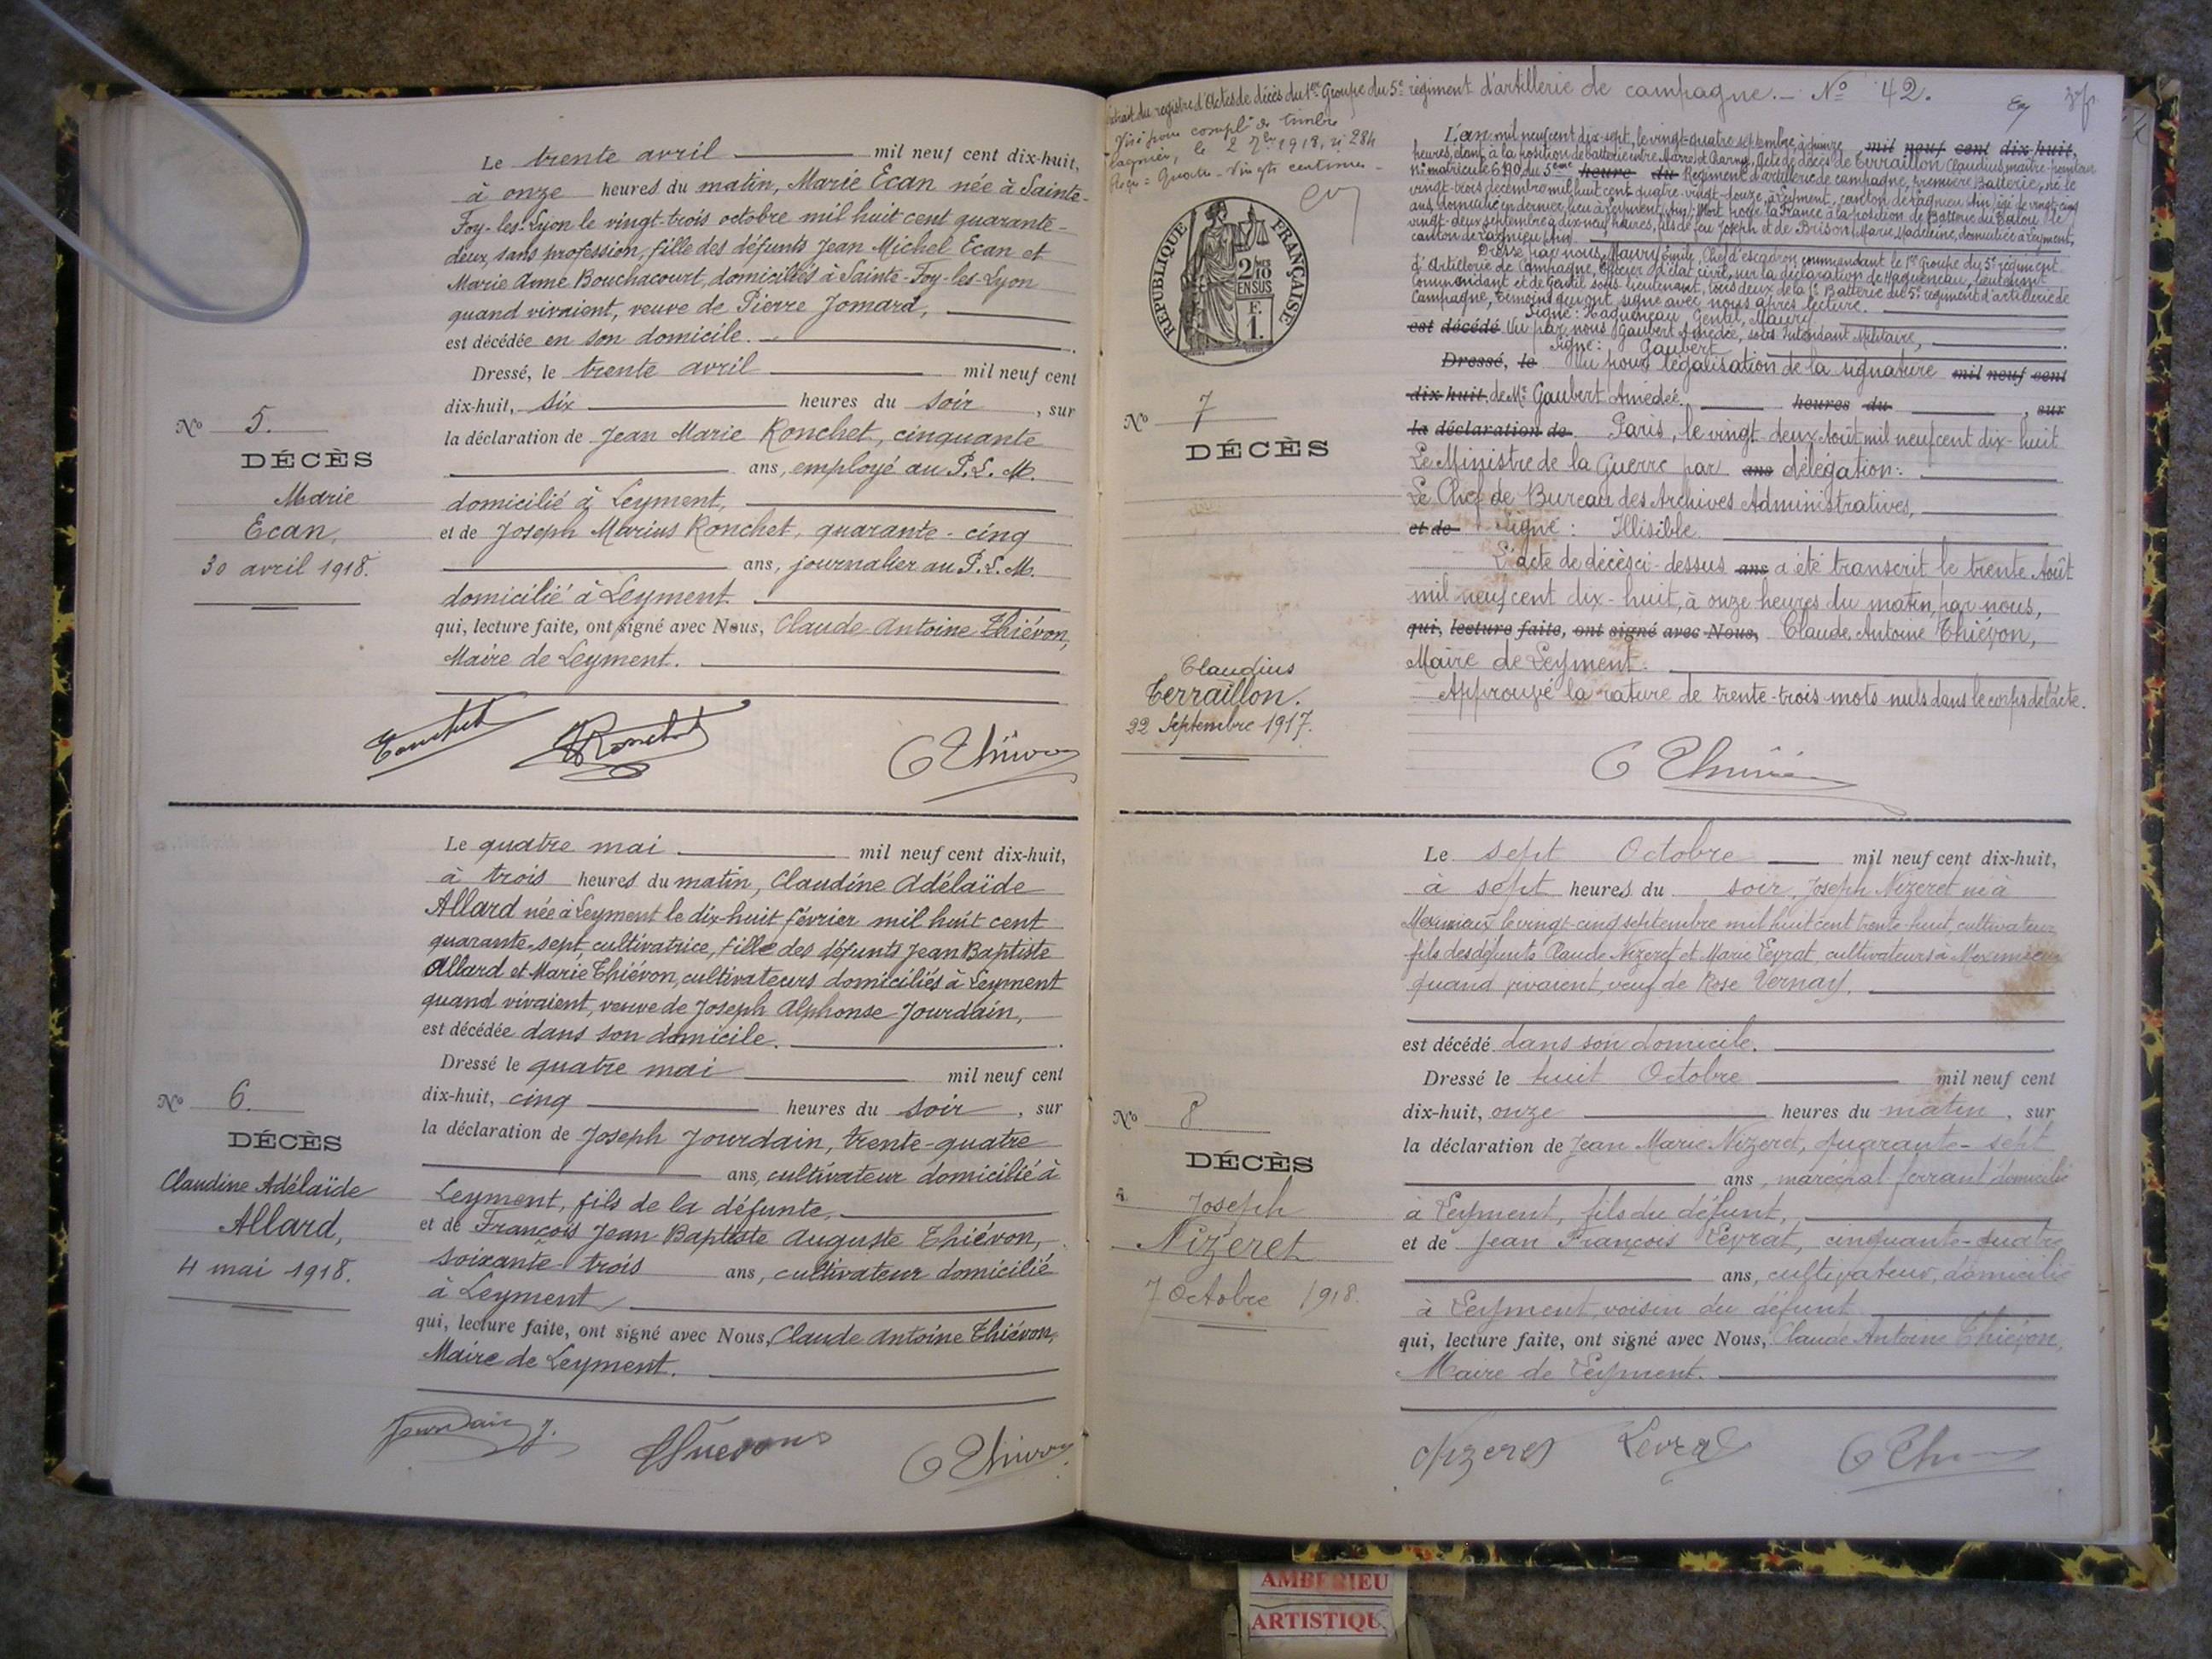 Le trente avril mil neuf cent dix-huit,
à onze heures du matin, Marie Ecan née à Sainte-
Foy-les-Lyon le vingt-trois octobre mil huit cent quarante-
deux, sans profession, fille des défunts Jean Michel Ecan et
Marie Anne Bouchacourt, domiciliés à Sainte-Foy-les-Lyon
quand vivaient, veuve de Pierre Jomard,
est décédée en son domicile.
Dressé, le trente avril mil neuf cent
dix-huit, six heures du soir, sur
la déclaration de Jean Marie Ronchet, cinquante
ans, employé au P.L.M.
domicilié à Leyment,
et de Joseph Marius Ronchet, quarante-cinq
ans, journalier au P.L.M.
domicilié à Leyment.
qui, lecture faite, ont signé avec Nous, Claude-Antoine Thiévon,
Maire de Leyment.
No 5.
DÉCÈS
Marie
Ecan,
30 avril 1918.
Ronchet
C Thiévon
Le quatre mai mil neuf cent dix-huit,
à trois heures du matin, Claudine Adélaïde
Allard née à Leyment le dix-huit février mil huit cent
quarante-sept, cultivatrice, fille des défunts Jean Baptiste
Allard et Marie Thiévon, cultivateurs domiciliés à Leyment
quand vivaient, veuve de Joseph Alphonse Jourdain,
est décédée dans son domicile.
Dressé le quatre mai mil neuf cent
dix-huit, cinq heures du soir, sur
la déclaration de Joseph Jourdain, trente-quatre
ans, cultivateur domicilié à
Leyment, fils de la défunte,
et de François Jean Baptiste Auguste Thiévon,
soixante-trois ans, cultivateur domicilié
à Leyment
qui, lecture faite, ont signé avec Nous, Claude Antoine Thiévon,
Maire de Leyment.
No 6.
DÉCÈS
Claudine Adélaïde
Allard,
4 mai 1918.
Jourdain J.
Thiévon
C Thiévon
Extrait du registre d'Actes de décès du 1er Groupe du 5e régiment d'artillerie de campagne.- No 42.
Visé pour timbre
Lagnieu, le 2 7bre 1918, 284
Reçu = Quatre-Vingts centimes
RÉPUBLIQUE FRANÇAISE
2/10 EN SUS
F. 1.
L'an mil neuf cent dix-sept, le vingt-quatre septembre à quinze mil neuf cent dix-huit,
heures, étant à la position de batterie entre Marre et Charny, Acte de décès de Terraillon Claudius, maître-pointeur
No matricule 6190 du 5ème heure du Régiment d'artillerie de campagne, première Batterie, né le
vingt-trois décembre mil huit cent quatre-vingt-douze, à Leyment, canton de Lagnieu Ain, âgé de vingt-cinq
ans, domicilié en dernier lieu à Leyment, Ain, Mort pour la France à la position de Batterie du le
vingt-deux septembre à dix-neuf heures, fils de feu Joseph et de Brison Marie Madeleine, domiciliée à Leyment,
canton de Lagnieu Ain.
Dressé par nous Maury Emile, Chef d'escadron commandant le 1er Groupe du 5e régiment
d'Artillerie de Campagne, Officier d'état civil, sur la déclaration de Haqueneau, Lieutenant
Commandant et de Gentil sous-lieutenant, tous deux de la 1e Batterie du 5e régiment d'artillerie de
Campagne, témoins qui ont signé avec nous après lecture.
Signé: Haqueneau, Gentil, Maury
est décédé Vu par nous Gaubert Amédée, sous Intendant Militaire,
Signé: Gaubert
Dressé, le Vu pour légalisation de la signature mil neuf cent
dix-huit, de Mr Gaubert Amédée. heures du , sur
la déclaration de Paris, le vingt-deux Août mil neuf cent dix-huit
Le Ministre de la Guerre par ans délégation:
Le Chef de Bureau des Archives Administratives,
et de Signé: Illisible
L'acte de décès ci-dessus ans a été transcrit le trente Août
mil neuf cent dix-huit, à onze heures du matin, par nous,
qui, lecture faite, ont signé avec Nous, Claude Antoine Thiévon,
Maire de Leyment.
Approuvé la rature de trente-trois mots nuls dans le corps de l'acte.
No 7
DÉCÈS
Claudius
Terraillon.
22 Septembre 1917.
C Thiévon
Le sept Octobre mil neuf cent dix-huit,
à sept heures du soir, Joseph Nizeret né à
Meximieux le vingt-cinq septembre mil huit cent trente-huit, cultivateur
fils des défunts Claude Nizeret et Marie Leyrat, cultivateurs à Meximieux
quand vivaient, veuf de Rose Vernay.
est décédé dans son domicile.
Dressé le huit Octobre mil neuf cent
dix-huit, onze heures du matin, sur
la déclaration de Jean Marie Nizeret, quarante-sept
ans, maréchal ferrant domicilié
à Leyment, fils du défunt,
et de Jean François Levrat, cinquante-quatre
ans, cultivateur, domicilié
à Leyment, voisin du défunt
qui, lecture faite, ont signé avec Nous, Claude Antoine Thiévon,
Maire de Leyment.
No 8
DÉCÈS
Joseph
Nizeret
7 Octobre 1918.
Nizeret
Levrat
C Thiévon
AMBERIEU
ARTISTIQU